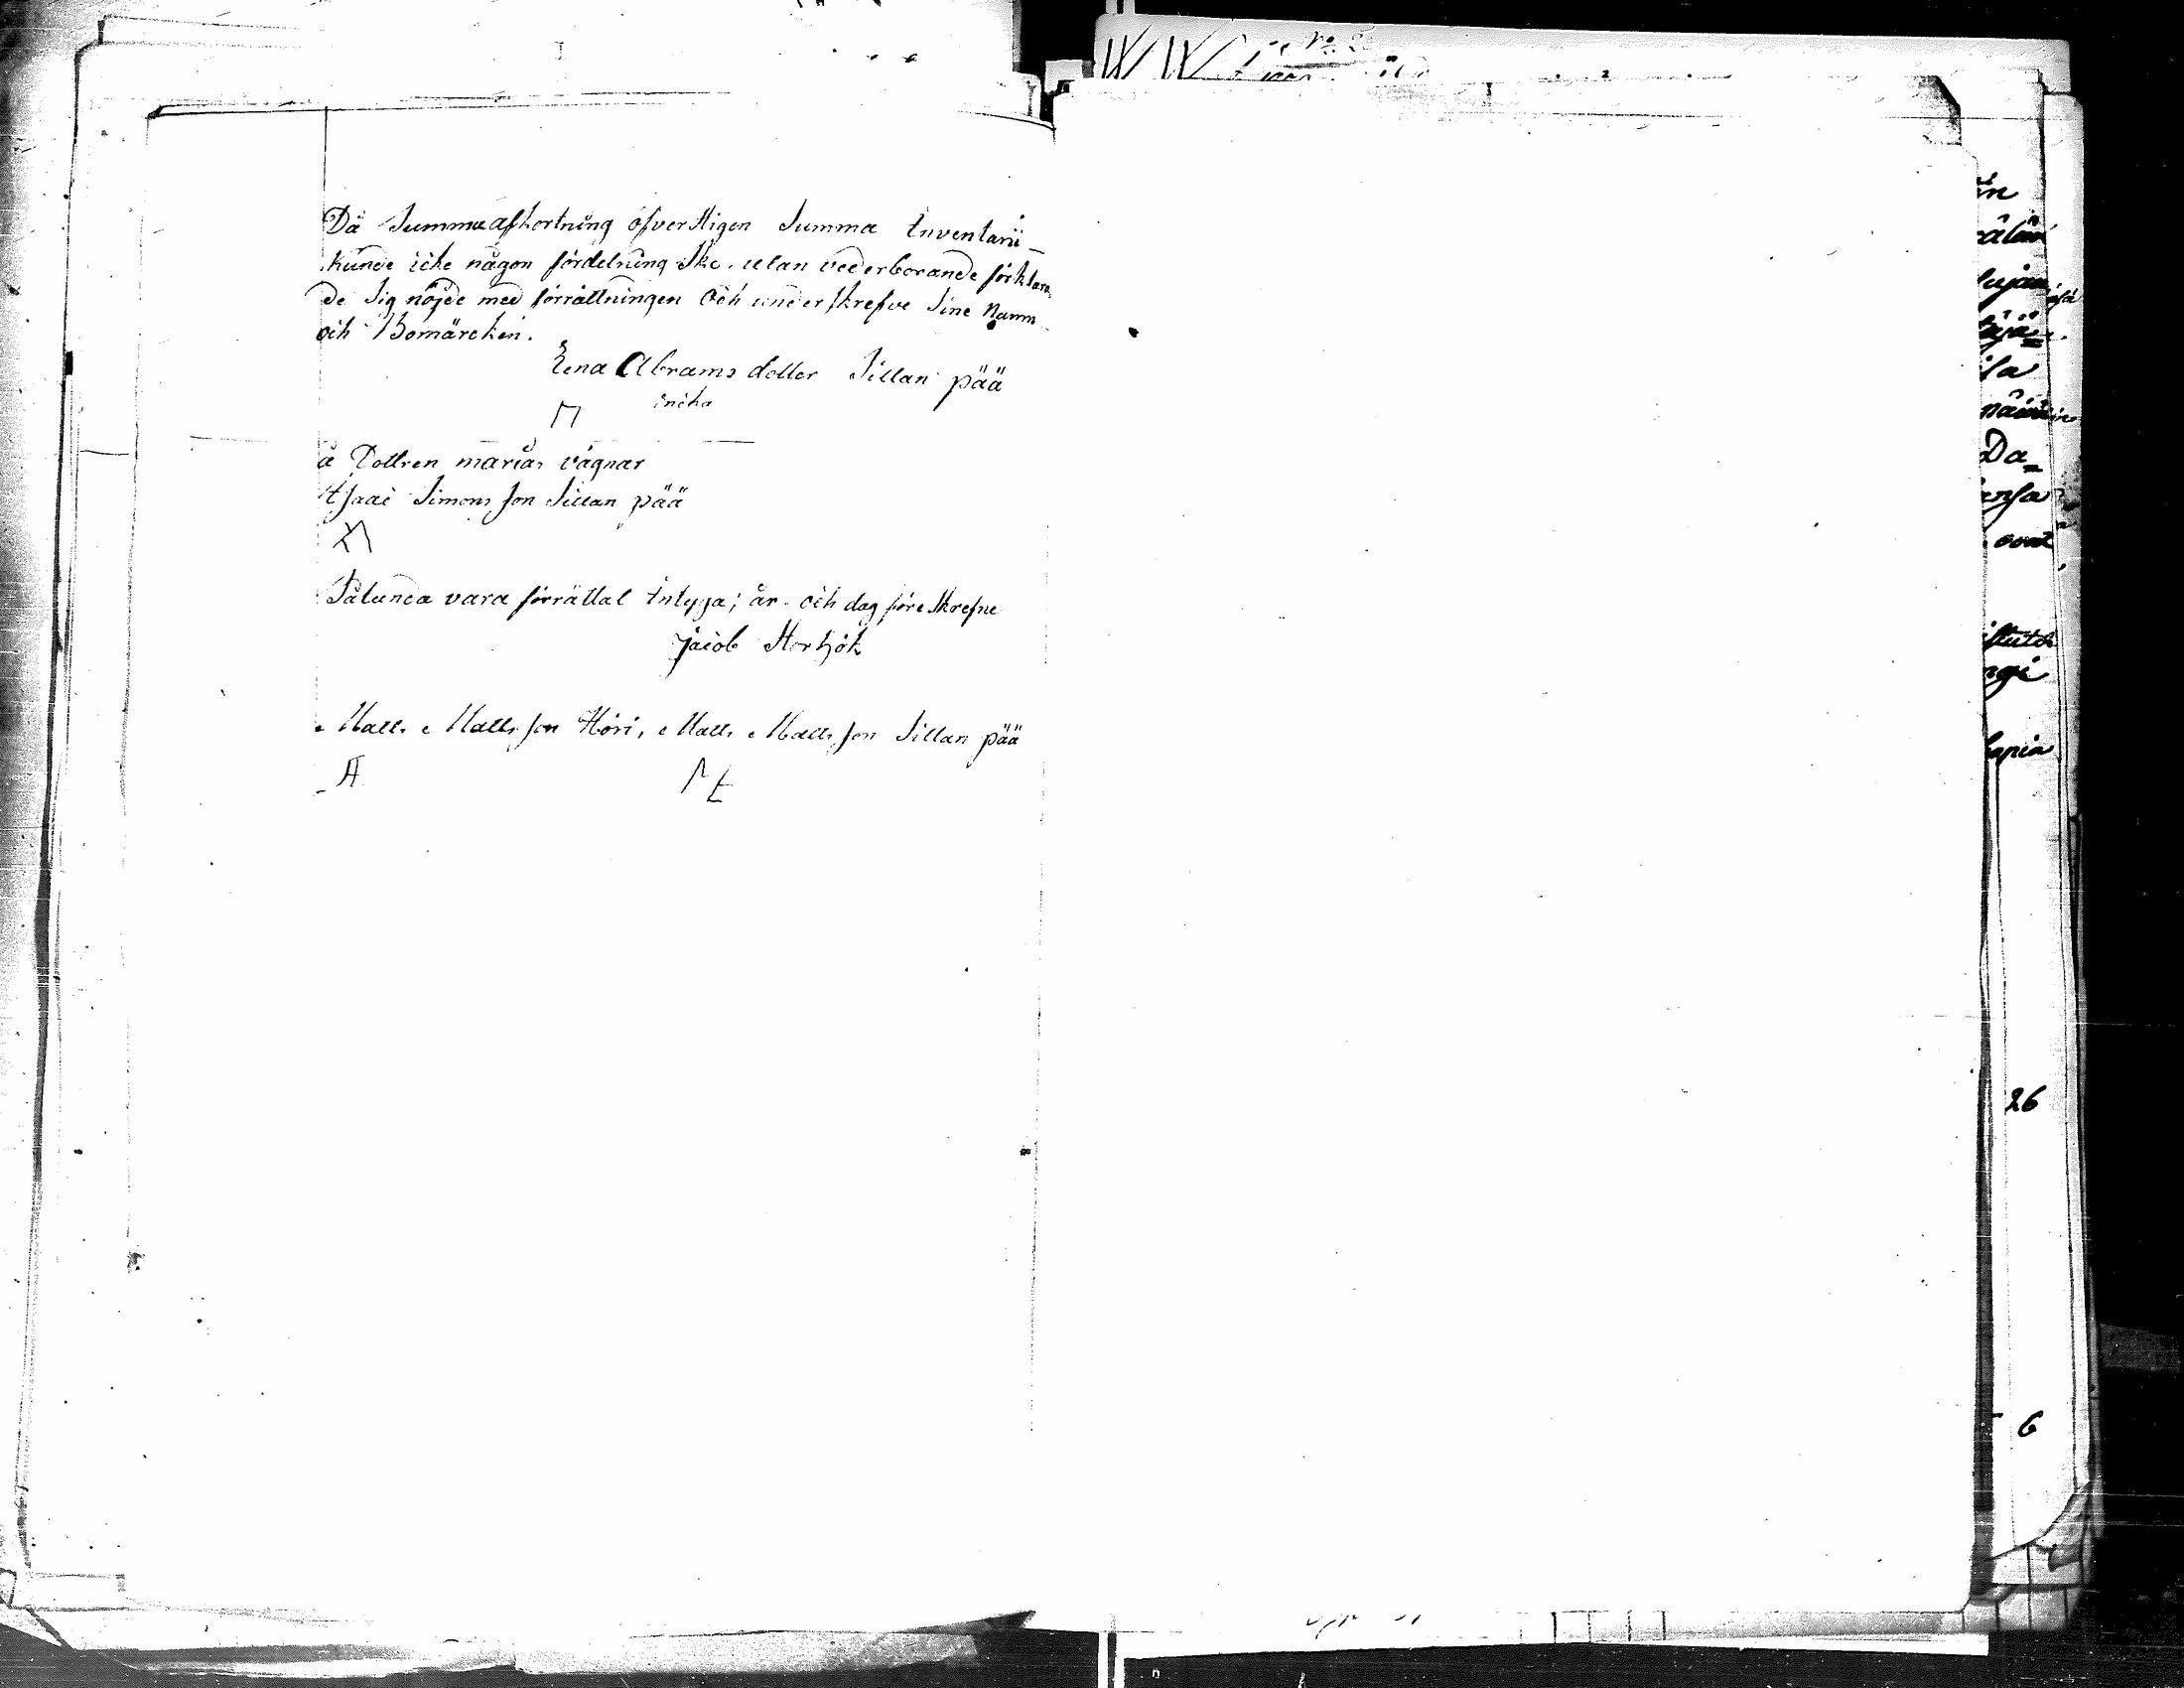 Då Summa afkortning öfverstigen Summa Inventarii
kunde icke någon fördelning Ske, utan vederborande förklara
de Sig nöjde med förrättningen Och underskrefve Sine Namn
och Bomärcken.
Lena Abrams dotter Sillan pää
encka
å Dottren marias vägnar
Isaac Simons son Sillan pää
Sålunda vara förrättat Intyga; år och dag föreskrefne
Jacob Storhök
Matts Matts son Höri, Matts Matts son Sillan pää
Da
26
6